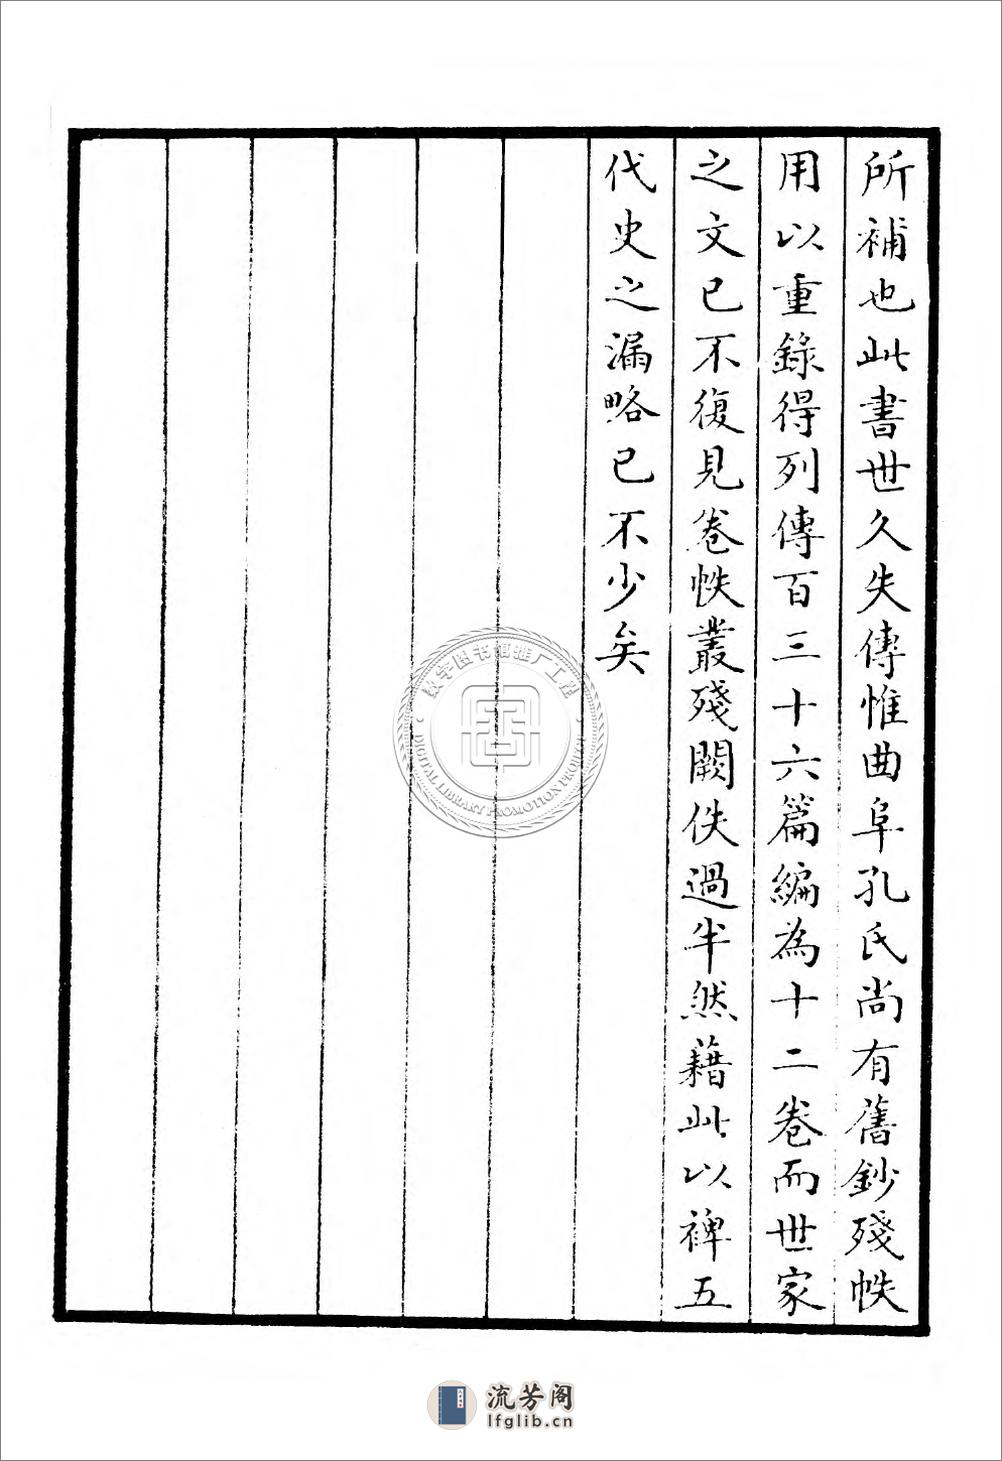 所補也此書世久失傳惟曲阜孔氏尚有舊鈔殘帙
用以重錄得列傳百三十六篇編為十二卷而世家
之文已不復見卷帙叢殘闕佚過半然藉此以裨五
代史之漏略已不少矣
数字图书馆推广工程
DIGITAL LIBRARY PROMOTION PROJECT
流芳阁
lfglib.cn